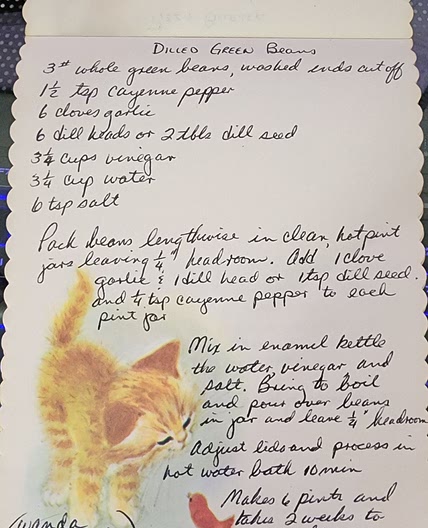 DILLED GREEN BEANS
3# whole green beans, washed ends cut off
1½ tsp cayenne pepper
6 cloves garlic
6 dill heads or 2 tbls dill seed
3¼ cups vinegar
3¼ cup water
6 tsp salt
Pack beans lengthwise in clean, hot pint
jars leaving ¼" headroom. Add 1 clove
garlic & 1 dill head or 1 tsp dill seed.
and ¼ tsp cayenne pepper to each
pint jar
Mix in enamel kettle
the water, vinegar, and
salt. Bring to boil
and pour over beans
in jar and leave ¼" headroom
Adjust lids and process in
hot water bath 10 min
Makes 6 pints and
takes 2 weeks to
(Wanda )